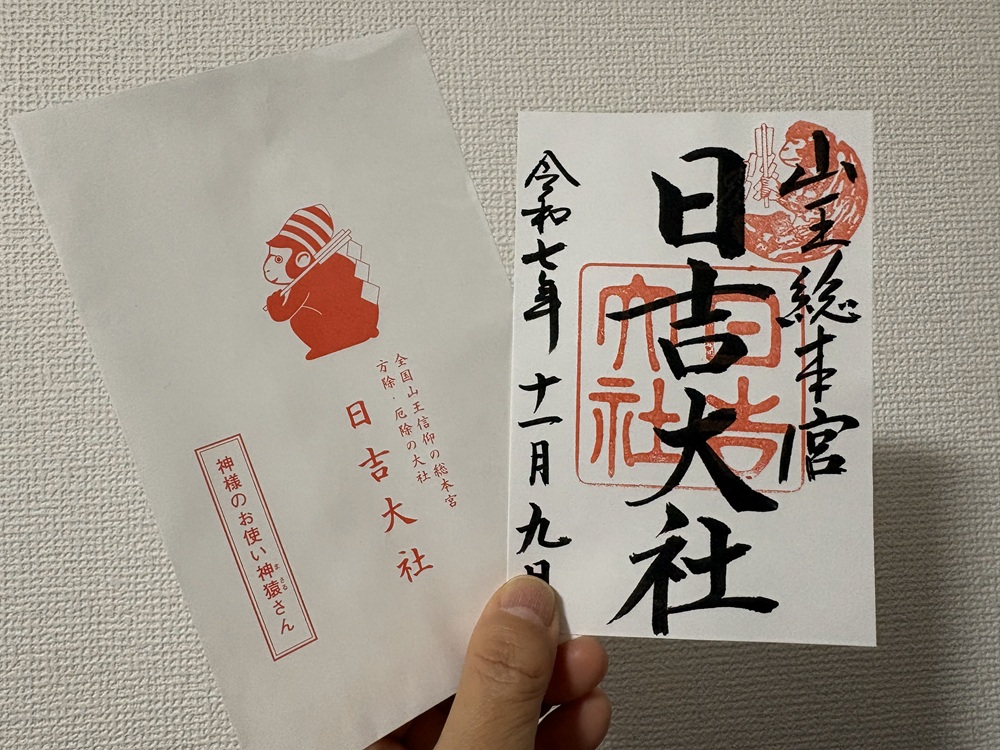 全国山王信仰の総本宮
方除・厄除の大社
日吉大社
神様のお使い神猿さん
まさる
山王総本宮
日吉大社
日吉大社
令和七年 十一月 九日